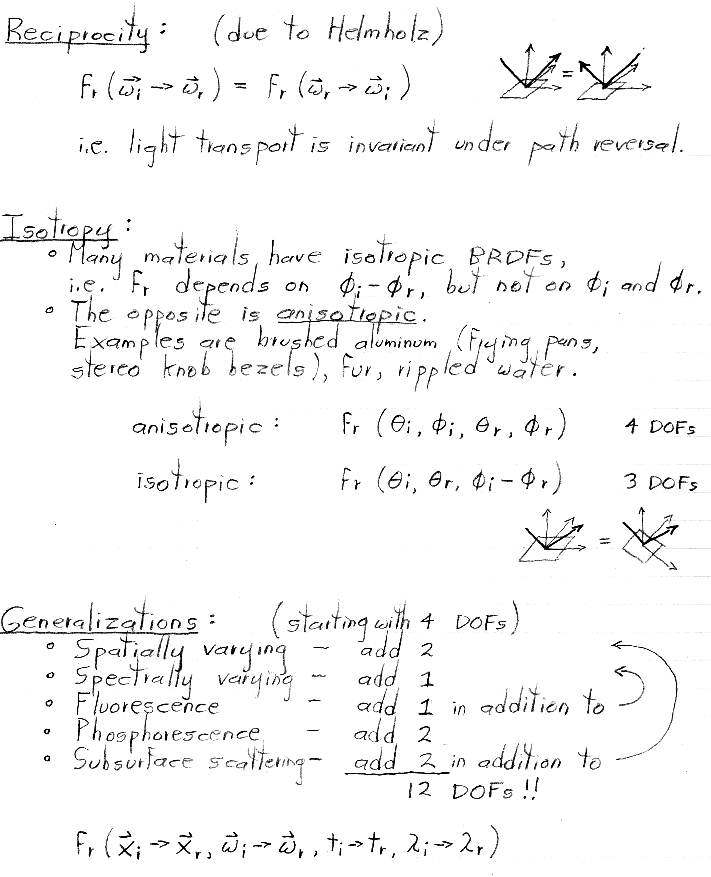 Reciprocity: (due to Helmholz)
Fr (ω⃗i → ω⃗r) = Fr (ω⃗r → ω⃗i)
=
i.e. light transport is invariant under path reversal.
Isotropy:
° Many materials have isotropic BRDFs,
i.e. Fr depends on ϕi-ϕr, but not on ϕi and ϕr.
° The opposite is anisotropic.
Examples are brushed aluminum (frying pans,
stereo knob bezels), fur, rippled water.
anisotropic: Fr (θi, ϕi, θr, ϕr) 4 DOFs
isotropic: Fr (θi, θr, ϕi-ϕr) 3 DOFs
=
Generalizations: (starting with 4 DOFs)
° Spatially varying - add 2
° Spectrally varying - add 1
° Fluorescence - add 1 in addition to
° Phosphorescence - add 2
° Subsurface scattering - add 2 in addition to
12 DOFs!!
Fr (x⃗i → x⃗r, ω⃗i → ω⃗r, ti → tr, λi → λr)